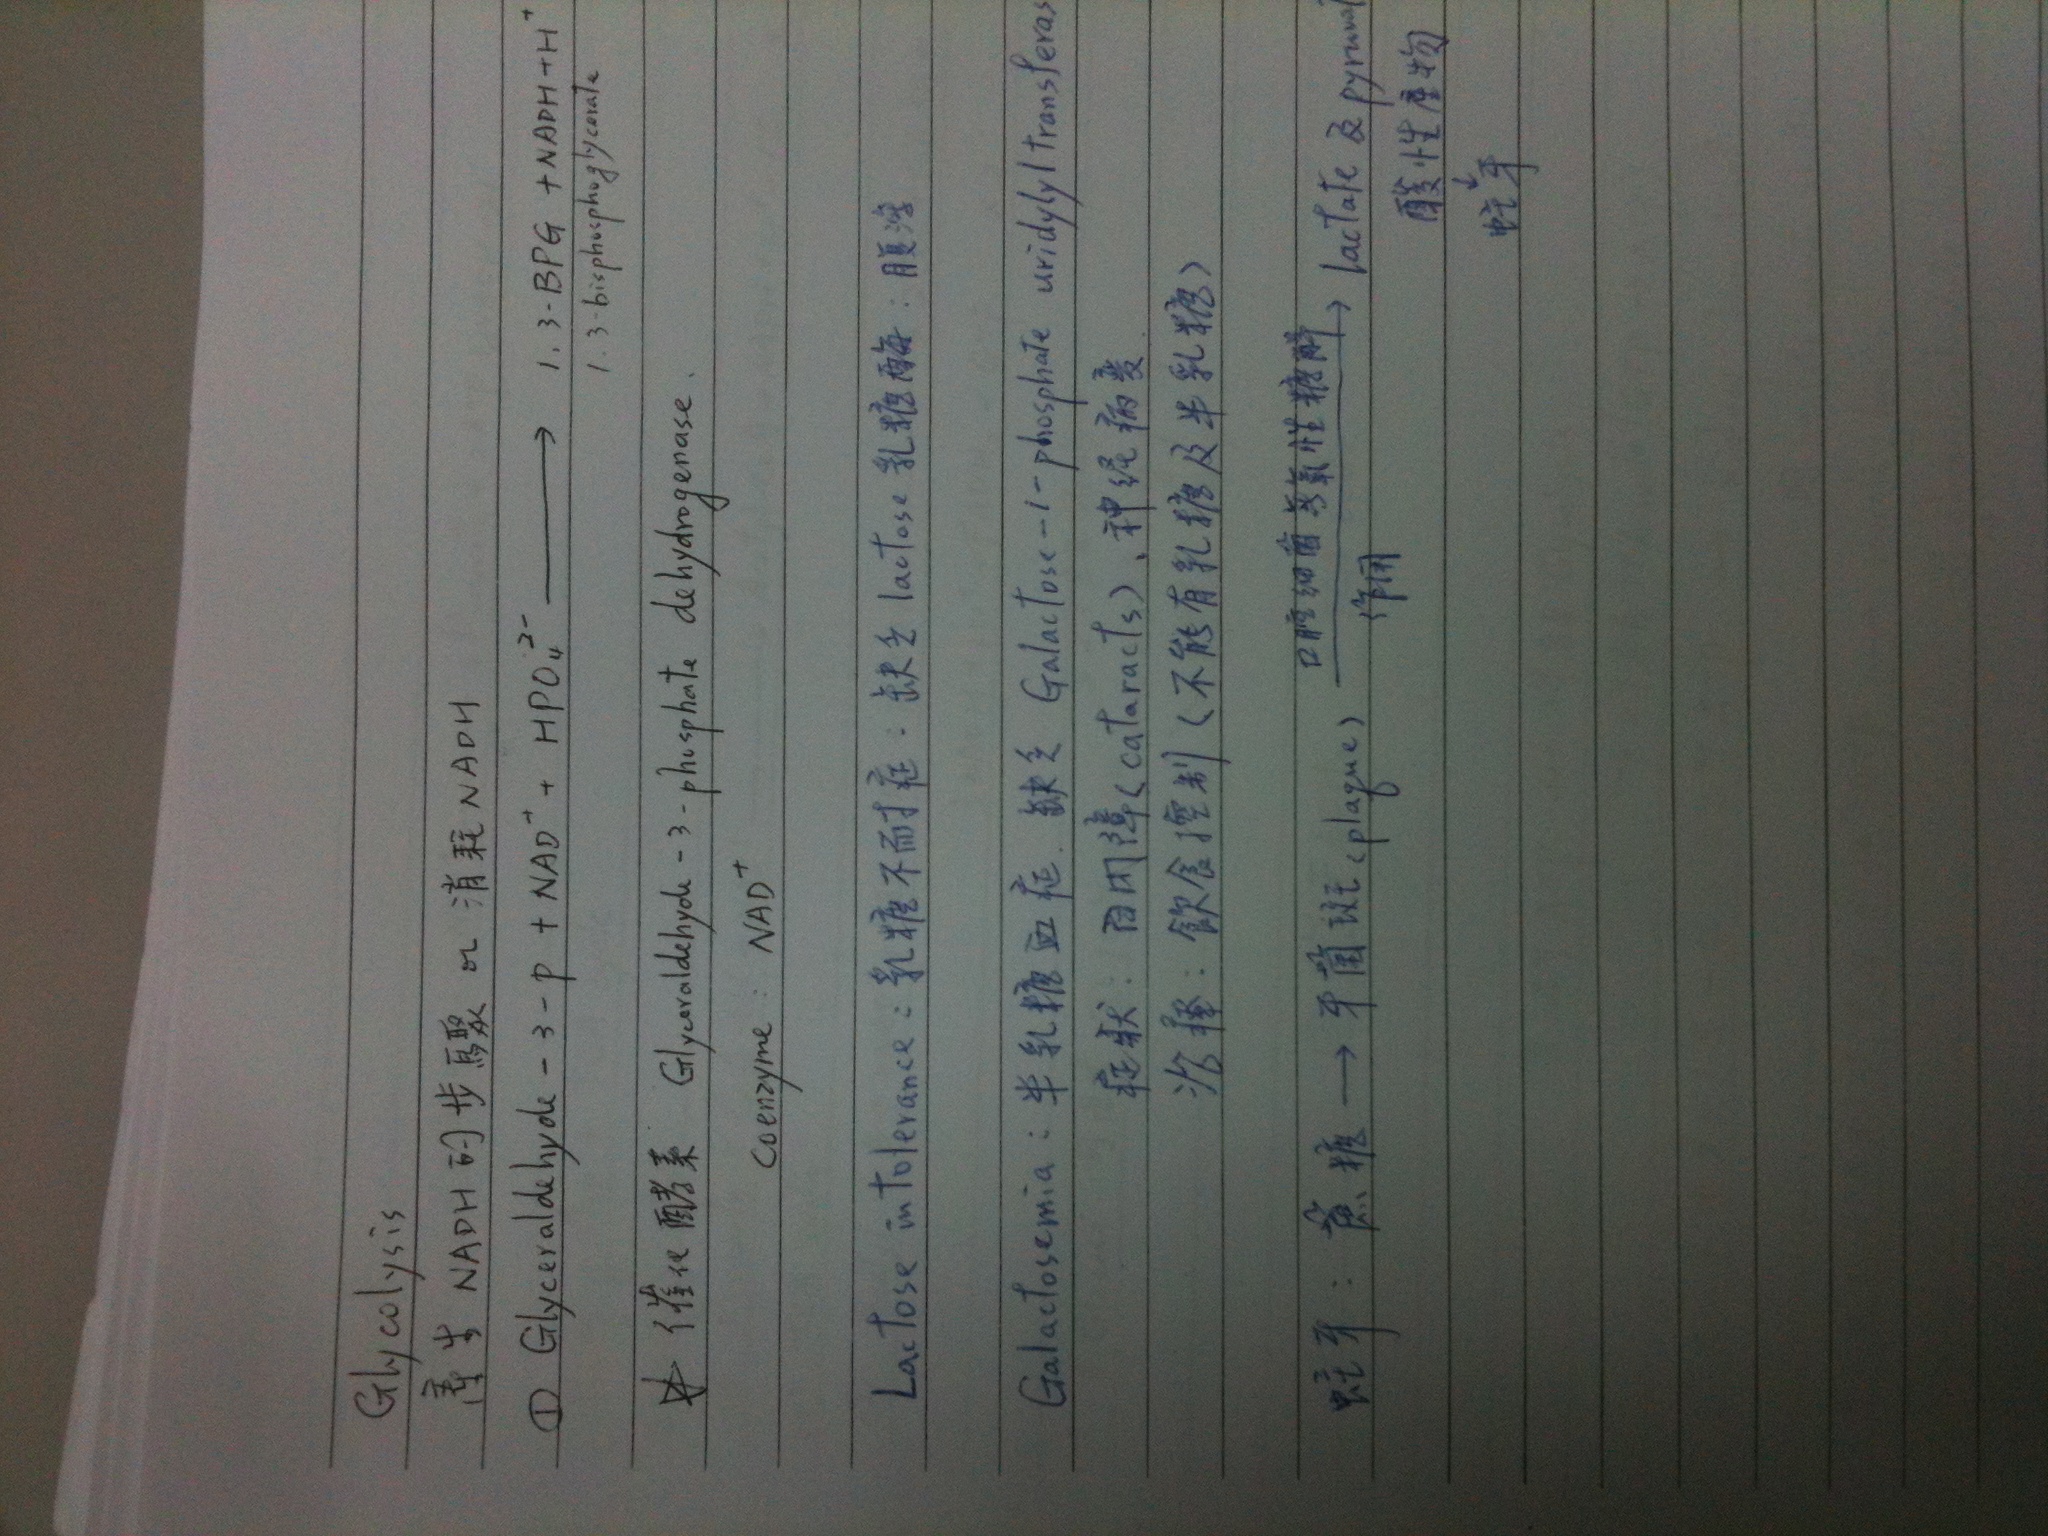 Glycolysis
產生 NADH 的步驟 or 消耗 NADH
① Glyceraldehyde-3-p + NAD⁺ + HPO₄²⁻ ⟶ 1.3-BPG + NADH + H⁺
1.3-bisphosphoglycerate
催化酵素 Glyceraldehyde-3-phosphate dehydrogenase.
coenzyme : NAD⁺
Lactose intolerance : 乳糖不耐症 : 缺乏 lactose 乳糖酶 : 腹瀉
Galactosemia : 半乳糖血症. 缺乏 Galactose-1-phosphate uridylyltransferas
症狀 : 白內障 (cataracts)、神经病变.
治療 : 飲食控制 (不能有乳糖及半乳糖)
口腔细菌無氧性糖解
蛀牙 : 蔗糖 → 牙菌斑 (plaque) ⟶ lactate 及 pyruvat
作用
酸性產物
↓
蛀牙